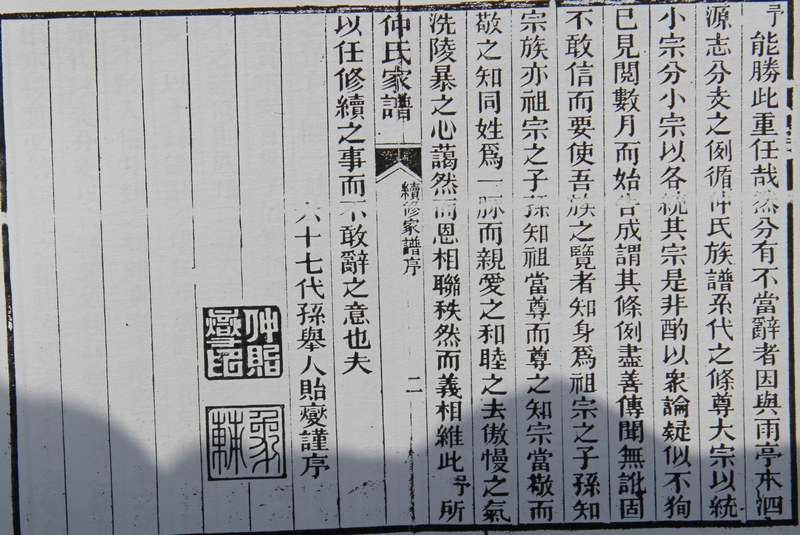 予能勝此重任哉然分有不當辭者因與雨亭本泗
源志分支之例循仲氏族譜系代之條尊大宗以統
小宗分小宗以各統其宗是非酌以衆論疑似不狥
已見閱數月而始告成謂其條例盡善傳聞無訛固
不敢信而要使吾族之覽者知身爲祖宗之子孫知
宗族亦祖宗之子孫知祖當尊而尊之知宗當敬而
敬之知同姓爲一脈而親愛之和睦之去傲慢之氣
洗陵暴之心藹然而恩相聯秩然而義相維此予所
仲氏家譜
續修家譜序
二
以任修續之事而不敢辭之意也夫
六十七代孫舉人貽燮謹序
仲貽燮印